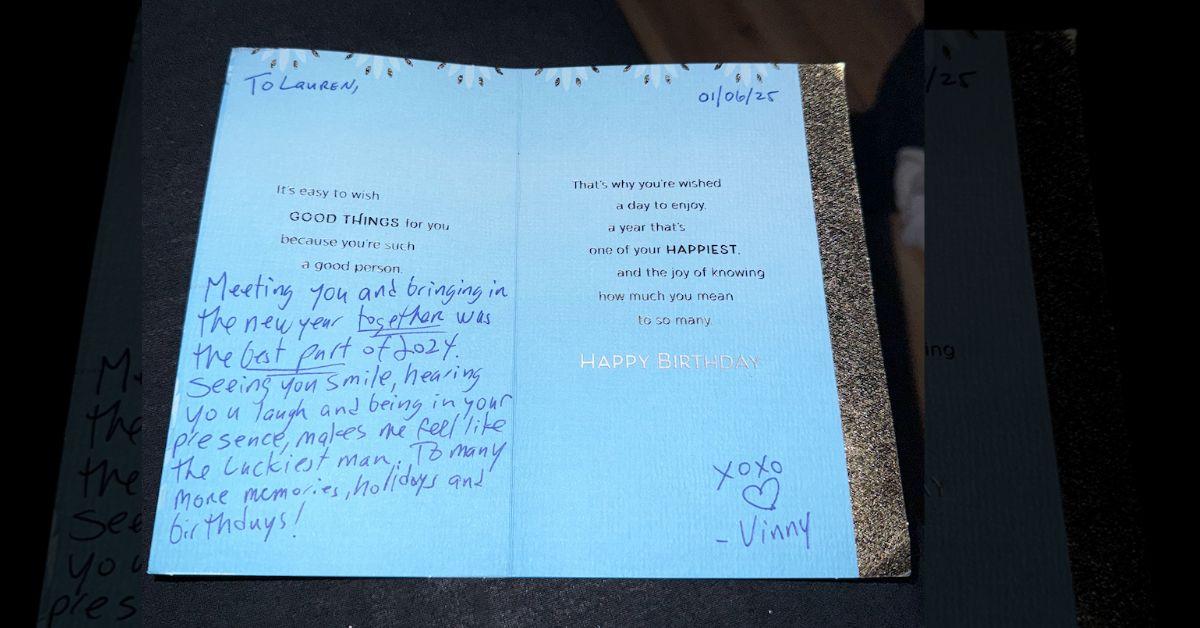 To Lauren,
It's easy to wish
GOOD THINGS for you
because you're such
a good person.
Meeting you and bringing in
the new year together was
the best part of 2024.
Seeing you smile, hearing
you laugh and being in your
presence, makes me feel like
the luckiest man. To many
more memories, holidays and
birthdays!
01/06/25
That's why you're wished
a day to enjoy,
a year that's
one of your HAPPIEST,
and the joy of knowing
how much you mean
to so many.
HAPPY BIRTHDAY
XOXO
- Vinny
/25
ing
M
the
the
See
you
pres